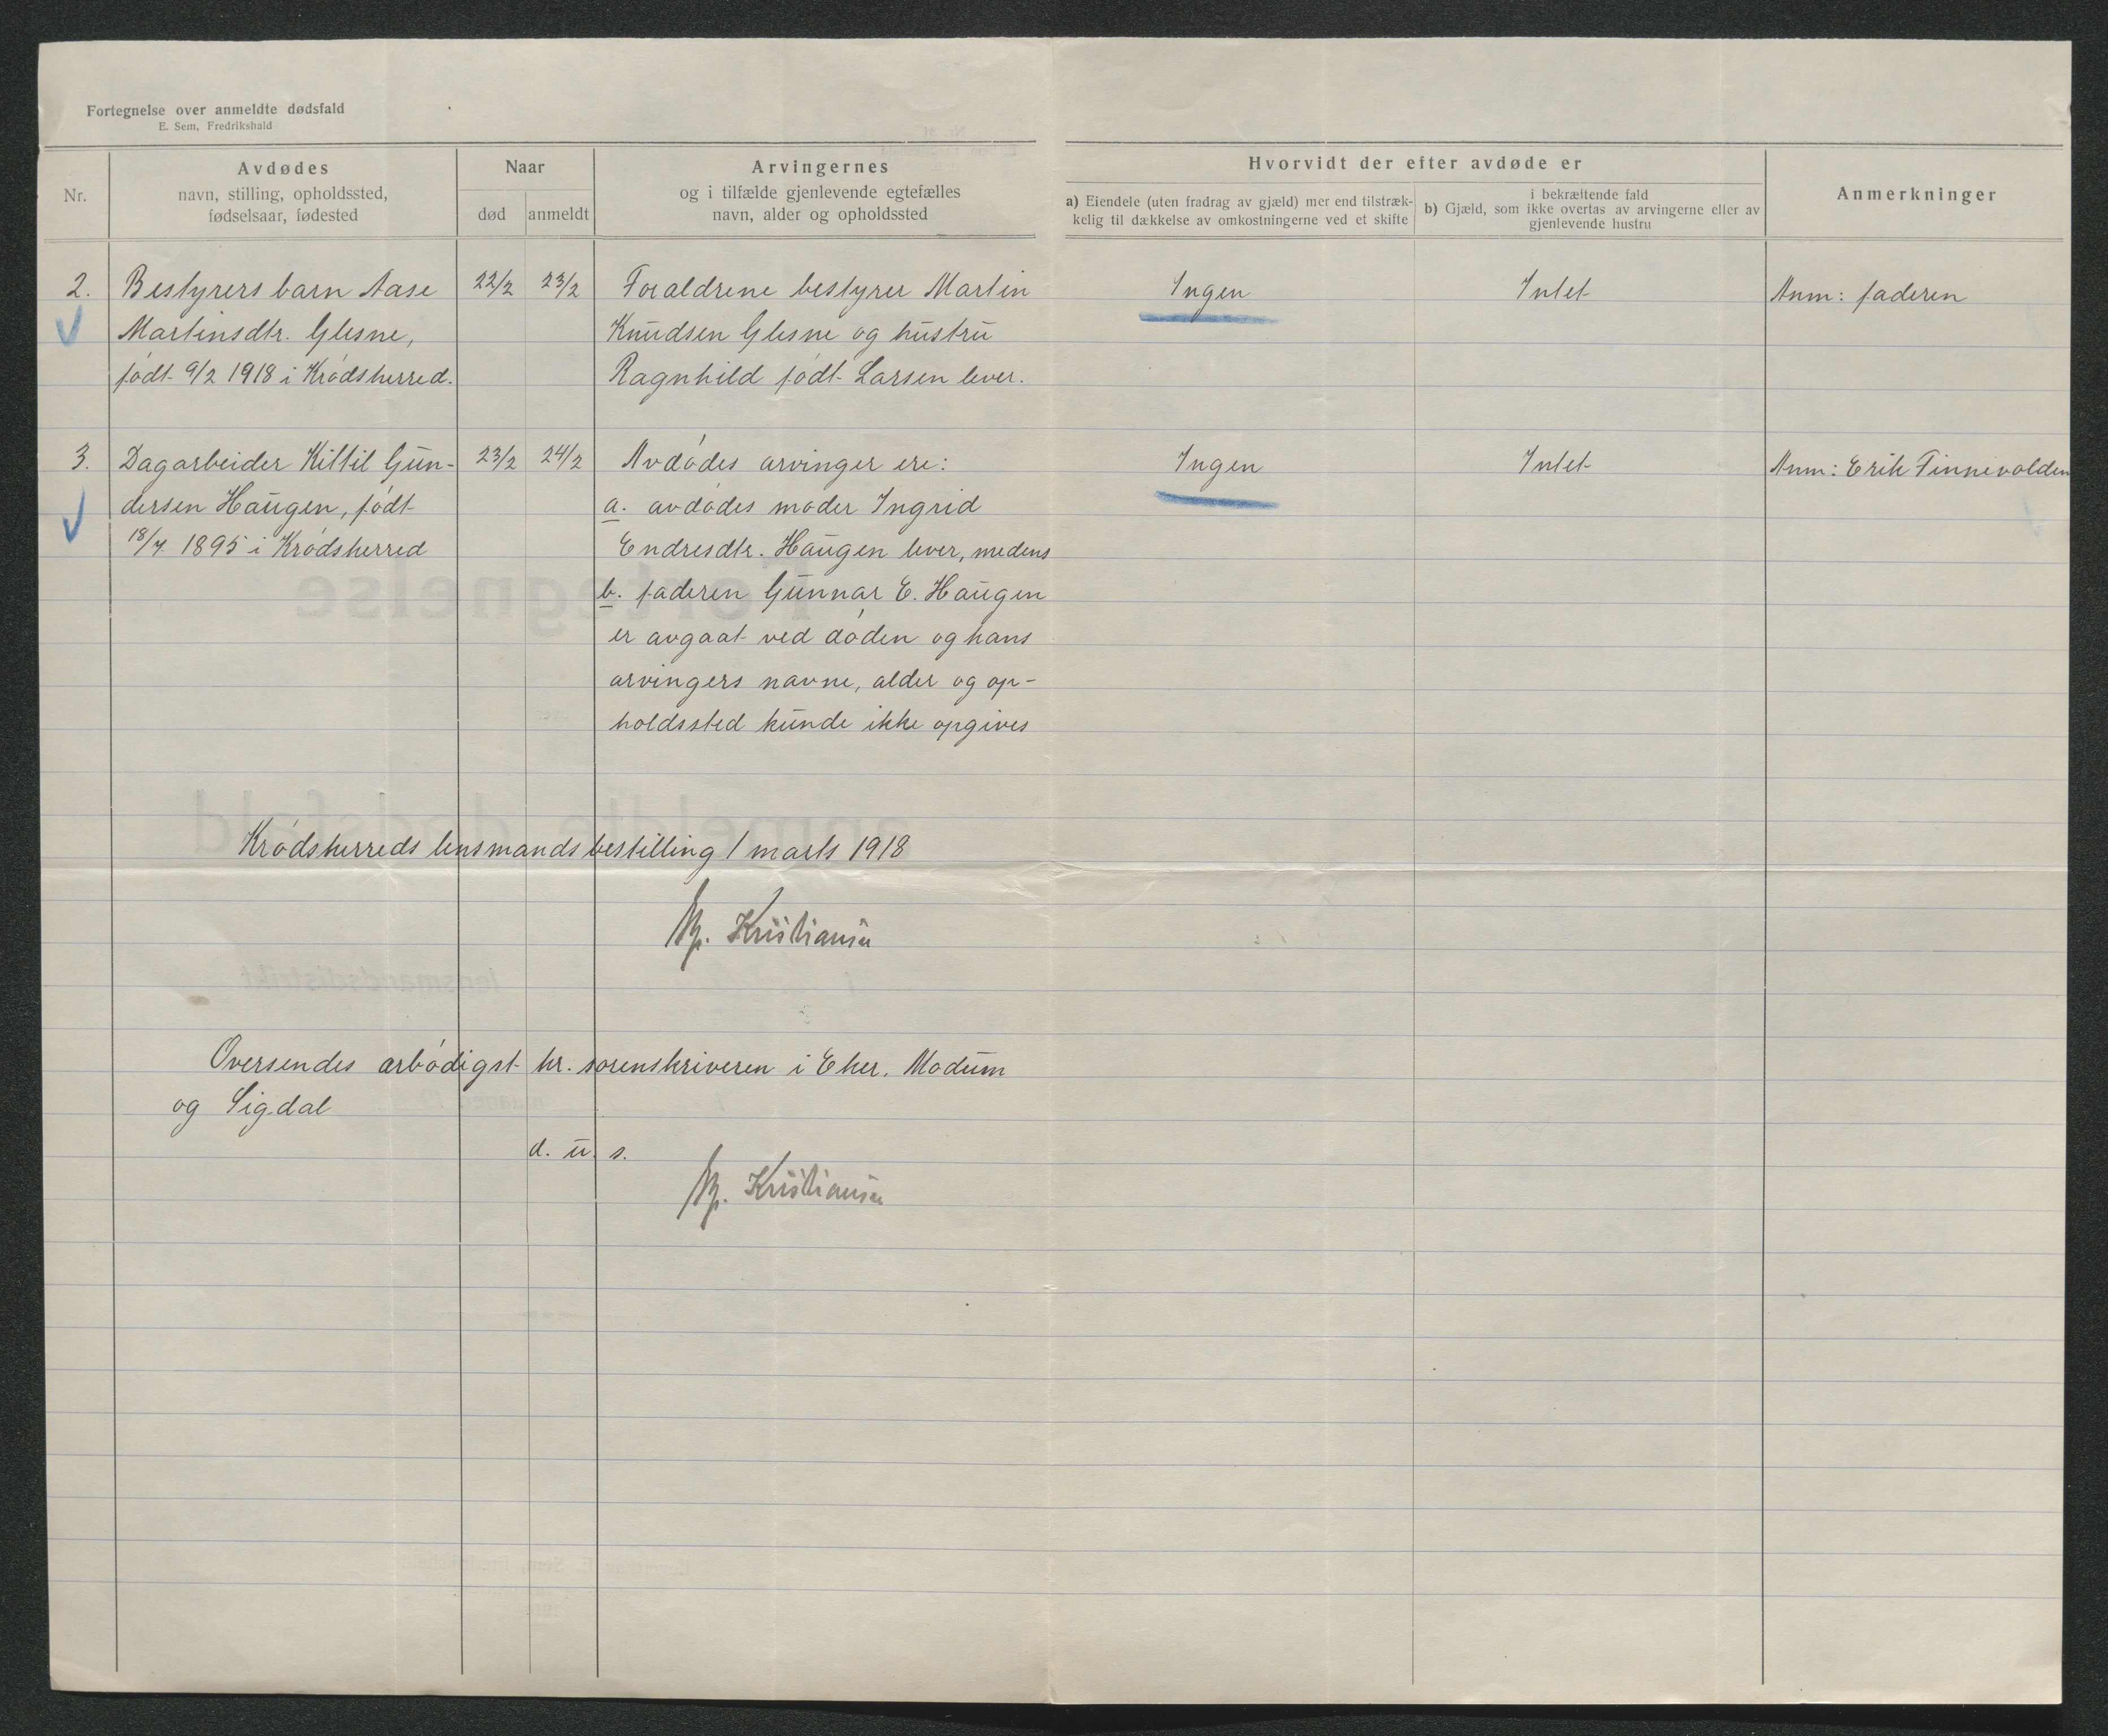 Fortegnelse over anmeldte dødsfald
E. Sem, Fredrikshald
Nr.
Avdødes
navn, stilling, opholdssted,
fødselsaar, fødested
Naar
død anmeldt
Arvingernes
og i tilfælde gjenlevende egtefælles
navn, alder og opholdssted
Hvorvidt der efter avdøde er
a) Eiendele (uten fradrag av gjæld) mer end tilstræk-
kelig til dækkelse av omkostningerne ved et skifte
i bekræftende fald
b) Gjæld, som ikke overtas av arvingerne eller av
gjenlevende hustru
Anmerkninger
2. Bestyrers barn Aase 22/2 23/2 Forældrene bestyrer Martin Ingen Intet Anm: faderen
Martinsdtr. Glesne, Knudsen Glesne og hustru
født 9/2 1918 i Krødsherred. Ragnhild født Larsen lever.
3. Dagarbeider Kittil Gun- 23/2 24/2 Avdødes arvinger ere: Ingen Intet Anm: Erik Finnevolden
dersen Haugen, født a. avdødes moder Ingrid
18/7 1895 i Krødsherred Endresdtr. Haugen lever, medens
b. faderen Gunnar E. Haugen
er avgaat ved døden og hans
arvingers navne, alder og op-
holdssted kunde ikke opgives
Krødsherreds lensmandsbestilling 1 marts 1918
Kristiansen
Oversendes ærbødigst hr. sorenskriveren i Eker, Modum
og Sigdal
d. u. s.
Kristiansen